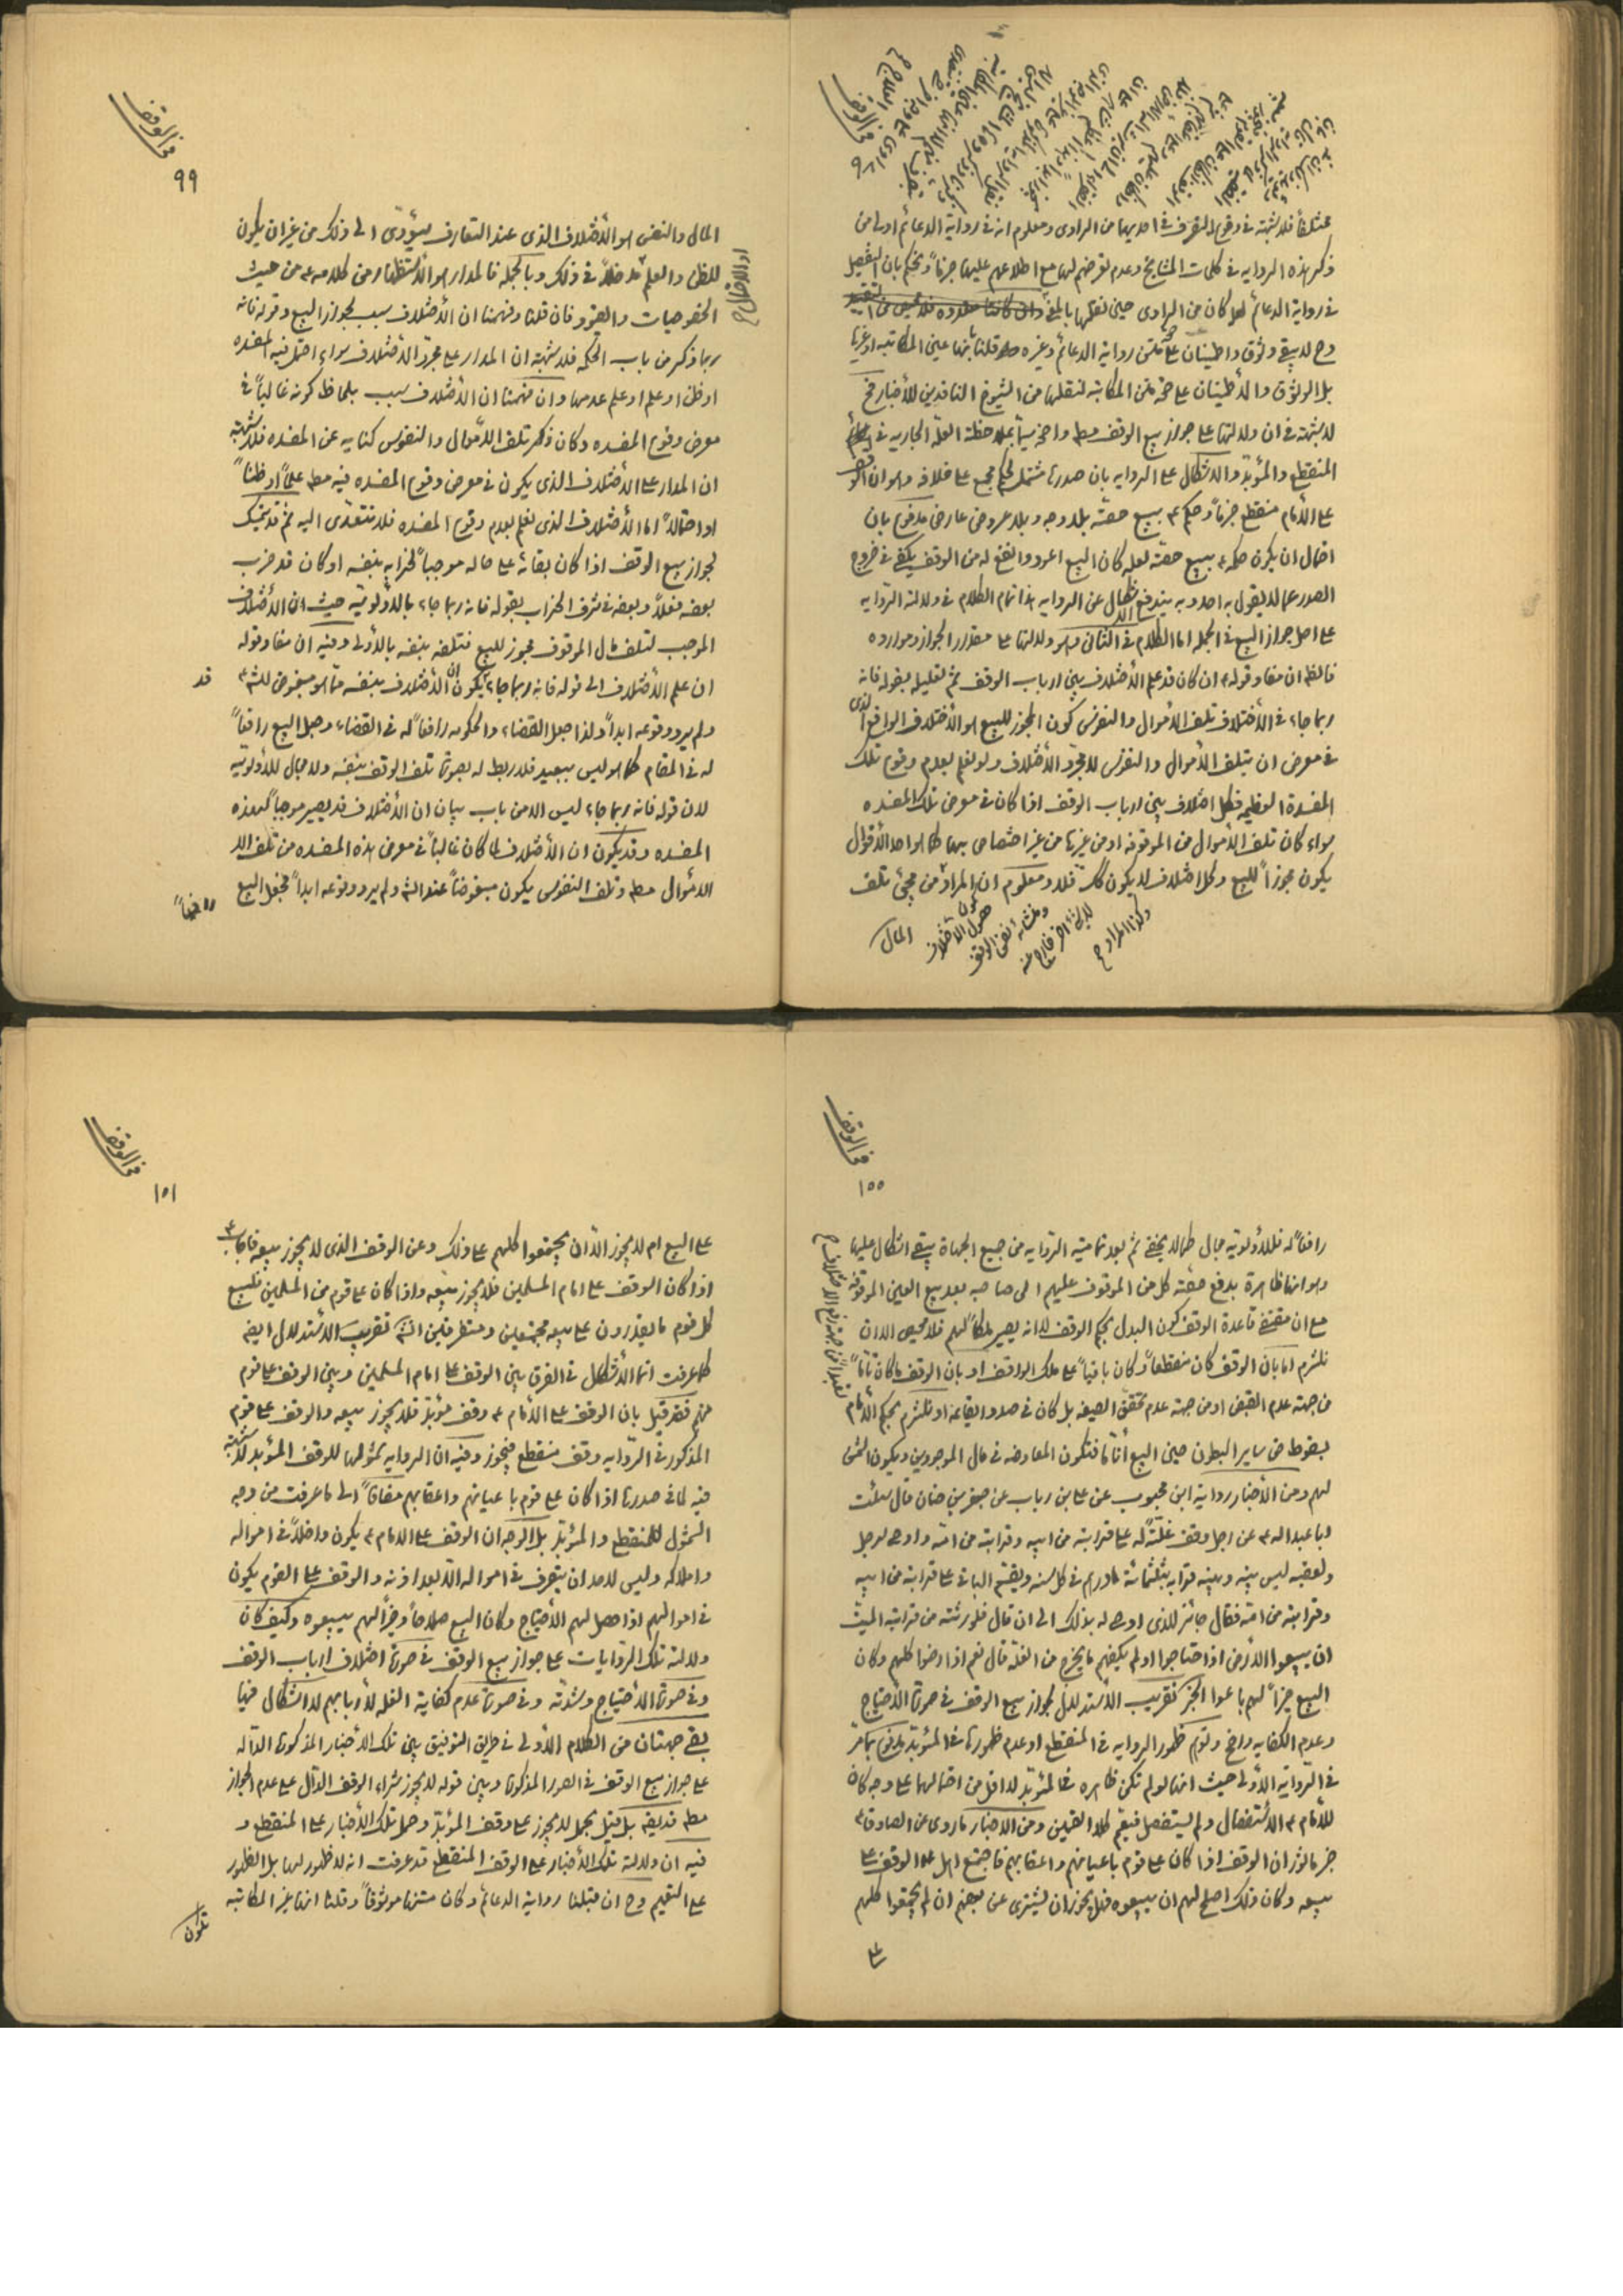 في الوقف
عشكلاً فلا شبهة في وقوع التصرف في احديهما من الراوى ومعلوم انه في رواية الدعائم اولى من
ذكر هذه الرواية في كلمات المشايخ وعدم تعرضهم لها مع اطلاعهم عليها جزماً ونحكم بان التفصيل
في رواية الدعائم لعله كان من الراوى حين نقلها بالمعنى
وح لا يبقى وثوق واطمينان على متن رواية الدعائم وغيره سواء قلنا بانها عين المكاتبه او غيرها
بل الوثوق والأطمينان على صحة متن المكاتبة لنقلها من الشيوخ الناقدين للأخبار فح
لا شبهة في ان دلالتها على جواز بيع الوقف مط واضحة سيما بملاحظة العلة الجارية في
المنقطع والمؤبد والاشكال على الرواية بان صدرها مشتمل لحكم مجمع على خلافه وهو ان الوقف
على الأمام منقطع جزماً وحكم ع ببيع حصته بلا وجه وبلا عروض عارض مدفوع بان
احتمال ان يكون حكمه ع ببيع حصته لعله كان البيع اعود وانفع له من الوقف يكفى في خروج
الصدر عما لا يقول به احد وبه يندفع الاشكال عن الرواية هذا تمام الكلام في دلالة الرواية
على اصل جواز البيع في الجملة اما الكلام في الثانى وهو دلالتها على مقدار الجواز وموارده
فالظ ان مفاد قوله ع ان كان قد علم الأختلاف بين ارباب الوقف ثم تعليله بقوله فانه
ربما جاء في الأختلاف تلف الأموال والنفوس كون المجوز للبيع هو الأختلاف الواقع الذى
في معرض ان يتلف الأموال والنفوس لا مجرد الأختلاف ولو لعلم بعدم وقوع تلك
المفسدة العظيمه فكل اختلاف بين ارباب الوقف اذا كان في معرض تلك المفسده
سواء كان تلف الأموال من الموقوفه او من غيرها من غير اختصاص بهما كما هو احد الأقوال
يكون مجوزاً للبيع وكل اختلاف لا يكون كك فلا ومعلوم ان المراد من مجئ تلف
المال
في الوقف
٩٩
المال والنفس هو الأختلاف الذى عند التعارف سيؤدى الى ذلك من غير ان يكون
للظن والعلم مدخلاً في ذلك وبالجمله فالمدار هو الأستظهار من كلامه ع من حيث
الخصوصيات والقيود فان قلنا وفهمنا ان الأختلاف سبب لجواز البيع وقوله فانه
ربما ذكر من باب الحكمه فلا شبهة ان المدار على مجرد الأختلاف سواء احتمل فيه المفسده
او ظن او علم او علم عدمها وان فهمنا ان الأختلاف سبب بلحاظ كونه غالباً في
معرض وقوع المفسده وكان ذكر تلف الأموال والنفوس كنايه عن المفسده فلا شبهة
ان المدار على الأختلاف الذى يكون في معرض وقوع المفسده فيه مط علماً او ظناً
او احتمالاً اما الأختلاف الذى يعلم بعدم وقوع المفسده فلا نتعدى اليه ثم قد يتمسك
لجواز بيع الوقف اذا كان بقائه على حاله موجباً لخرابه بنفسه او كان قد خرب
بعضه فعلاً وبعضه في شرف الخراب بقوله فانه ربما جاء بالأولوية حيث ان الأختلاف
الموجب لتلف مال الموقوف مجوز للبيع فتلفه بنفسه بالأولى وفيه ان مفاد قوله
ان علم الأختلاف الى قوله فانه ربما جاء ان يكون الأختلاف بنفسه مما هو مبغوض للشرع قد
ولم يرد وقوعه ابداً ولذا جعل القضاء والحكومه رافعاً له في القضاء وجعل البيع رافعاً
له في المقام كما هو ليس ببعيد فلا ربط له بصورة تلف الوقف بنفسه ولا مجال للأولوية
لان قوله فانه ربما جاء ليس الا من باب بيان ان الأختلاف قد يصير موجباً لهذه
المفسده وقد يكون ان الأختلاف لما كان غالباً في معرض هذه المفسده من تلف
الاموال مط وتلف النفوس يكون مبغوضاً عند الشرع ولم يرد وقوعه ابداً فجعل البيع رافعاً
في الوقف
١٥٥
رافعاً له فللأولوية مجال كما لا يخفى ثم بعد تمامية الرواية من جميع الجهاة يبقى اشكال عليها
وهو انها ظاهرة بدفع حصته كل من الموقوف عليهم الى صاحبه بعد بيع العين الموقوفه
مع ان مقتضى قاعدة الوقف كون البدل بحكم الوقف لا انه يصير ملكاً لهم فلا محيص الا ان
نلتزم اما بان الوقف كان منقطعاً وكان باقياً على ملك الواقف او بان الوقف ما كان تاماً
من جهة عدم القبض او من جهة عدم تحقق الصيغه بل كان في صدد ايقاعه او نلتزم بحكم الأمام
بسقوط حق ساير البطون حين البيع أناً ما فتكون المعاوضه في مال الموجودين ويكون الثمن
لهم ومن الأخبار رواية ابن محبوب عن على بن رباب عن جعفر بن حنان قال سئلت
ابا عبد الله ع عن رجل وقف غلة له على قرابته من ابيه وقرابته من امه واوصى لرجل
ولعقبه ليس بينه وبينه قرابه بثلثمائة درهم في كل سنه ويقسم الباقى على قرابته من ابيه
وقرابته من امه فقال جائز للذى اوصى له بذلك الى ان قال فلورثته من قرابة الميت
ان يبيعوا الأرض اذا احتاجوا ولم يكفهم ما يخرج من الغلة قال نعم اذا رضوا كلهم وكان
البيع خيراً لهم باعوا الخبر تقريب الأستدلال لجواز بيع الوقف في صورة الأحتياج
وعدم الكفايه واضح وتوهم ظهور الرواية في المنقطع او عدم ظهورها في المؤبد مدفوع بما مر
في الرواية الأولى حيث انها لو لم تكن ظاهره في المؤبد لا اقل من احتمالها على وجه كان
للأمام ع الاستفصال ولم يستفصل فيعم كلا القسمين ومن الاخبار ما روى عن الصادق ع
خبر مأثور ان الوقف اذا كان على قوم باعيانهم واعقابهم فاجتمع اهل الوقف على
بيعه وكان ذلك اصلح لهم ان يبيعوه فهل يجوز ان يشترى عن بعضهم ان لم يجتمعوا كلهم
على
في الوقف
١٥١
على البيع ام لا يجوز الا ان يجتمعوا كلهم على ذلك وعن الوقف الذى لا يجوز بيعه فاجاب ع
اذا كان الوقف على امام المسلمين فلا يجوز بيعه واذا كان على قوم من المسلمين فليبع
كل قوم ما يقدرون على بيعه مجتمعين ومتفرقين انش تقريب الأستدلال ايضاً
كما عرفت انما الأشكال في الفرق بين الوقف على امام المسلمين وبين الوقف على قوم
منهم فقد قيل بان الوقف على الأمام ع وقف مؤبد فلا يجوز بيعه والوقف على قوم
المذكور في الرواية وقف منقطع فيجوز وفيه ان الرواية شمولها للوقف المؤبد لا شبهة
فيه لما في صدرها اذا كان على قوم باعيانهم واعقابهم مضافاً الى ما عرفت من وجه
الشمول للمنقطع والمؤبد بل الوجه ان الوقف على الامام ع يكون داخلاً في امواله
واملاكه وليس لاحد ان يتصرف في امواله الا بعد اذنه والوقف على القوم يكون
في اموالهم اذا حصل لهم الأحتياج وكان البيع صلاحاً وخيراً لهم يبيعوه وكيف كان
دلالة تلك الروايات على جواز بيع الوقف في صورة اختلاف ارباب الوقف
وفي صورة الأحتياج وشدته وفي صورة عدم كفاية الغله لأربابهم لا اشكال فيها
بقى جهتان من الكلام الأولى في طريق التوفيق بين تلك الأخبار المذكورة الداله
على جواز بيع الوقف في الصور المذكورة وبين قوله لا يجوز شراء الوقف الدال على عدم الجواز
مط قديقه بل قيل يحمل لا يجوز على وقف المؤبد وحمل تلك الأخبار على المنقطع و
فيه ان دلالة تلك الأخبار على الوقف المنقطع قد عرفت انه لا ظهور لها بل الظهور
على التعميم وح ان قبلنا رواية الدعائم وكان متنها موثوقاً وقلنا انها غير المكاتبة
تكون